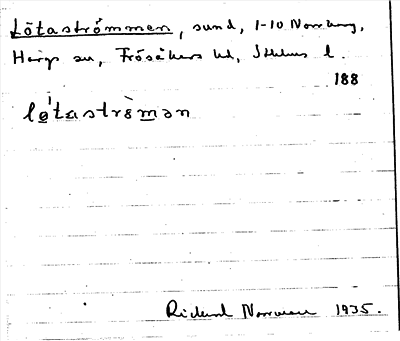 Lötaströmmen, sund, 1-10 Norrboy,
Hargs sn, Frösåkers hd, Sthlms l.
188
lø̀tastrømən
Rickard Norrman 1935.